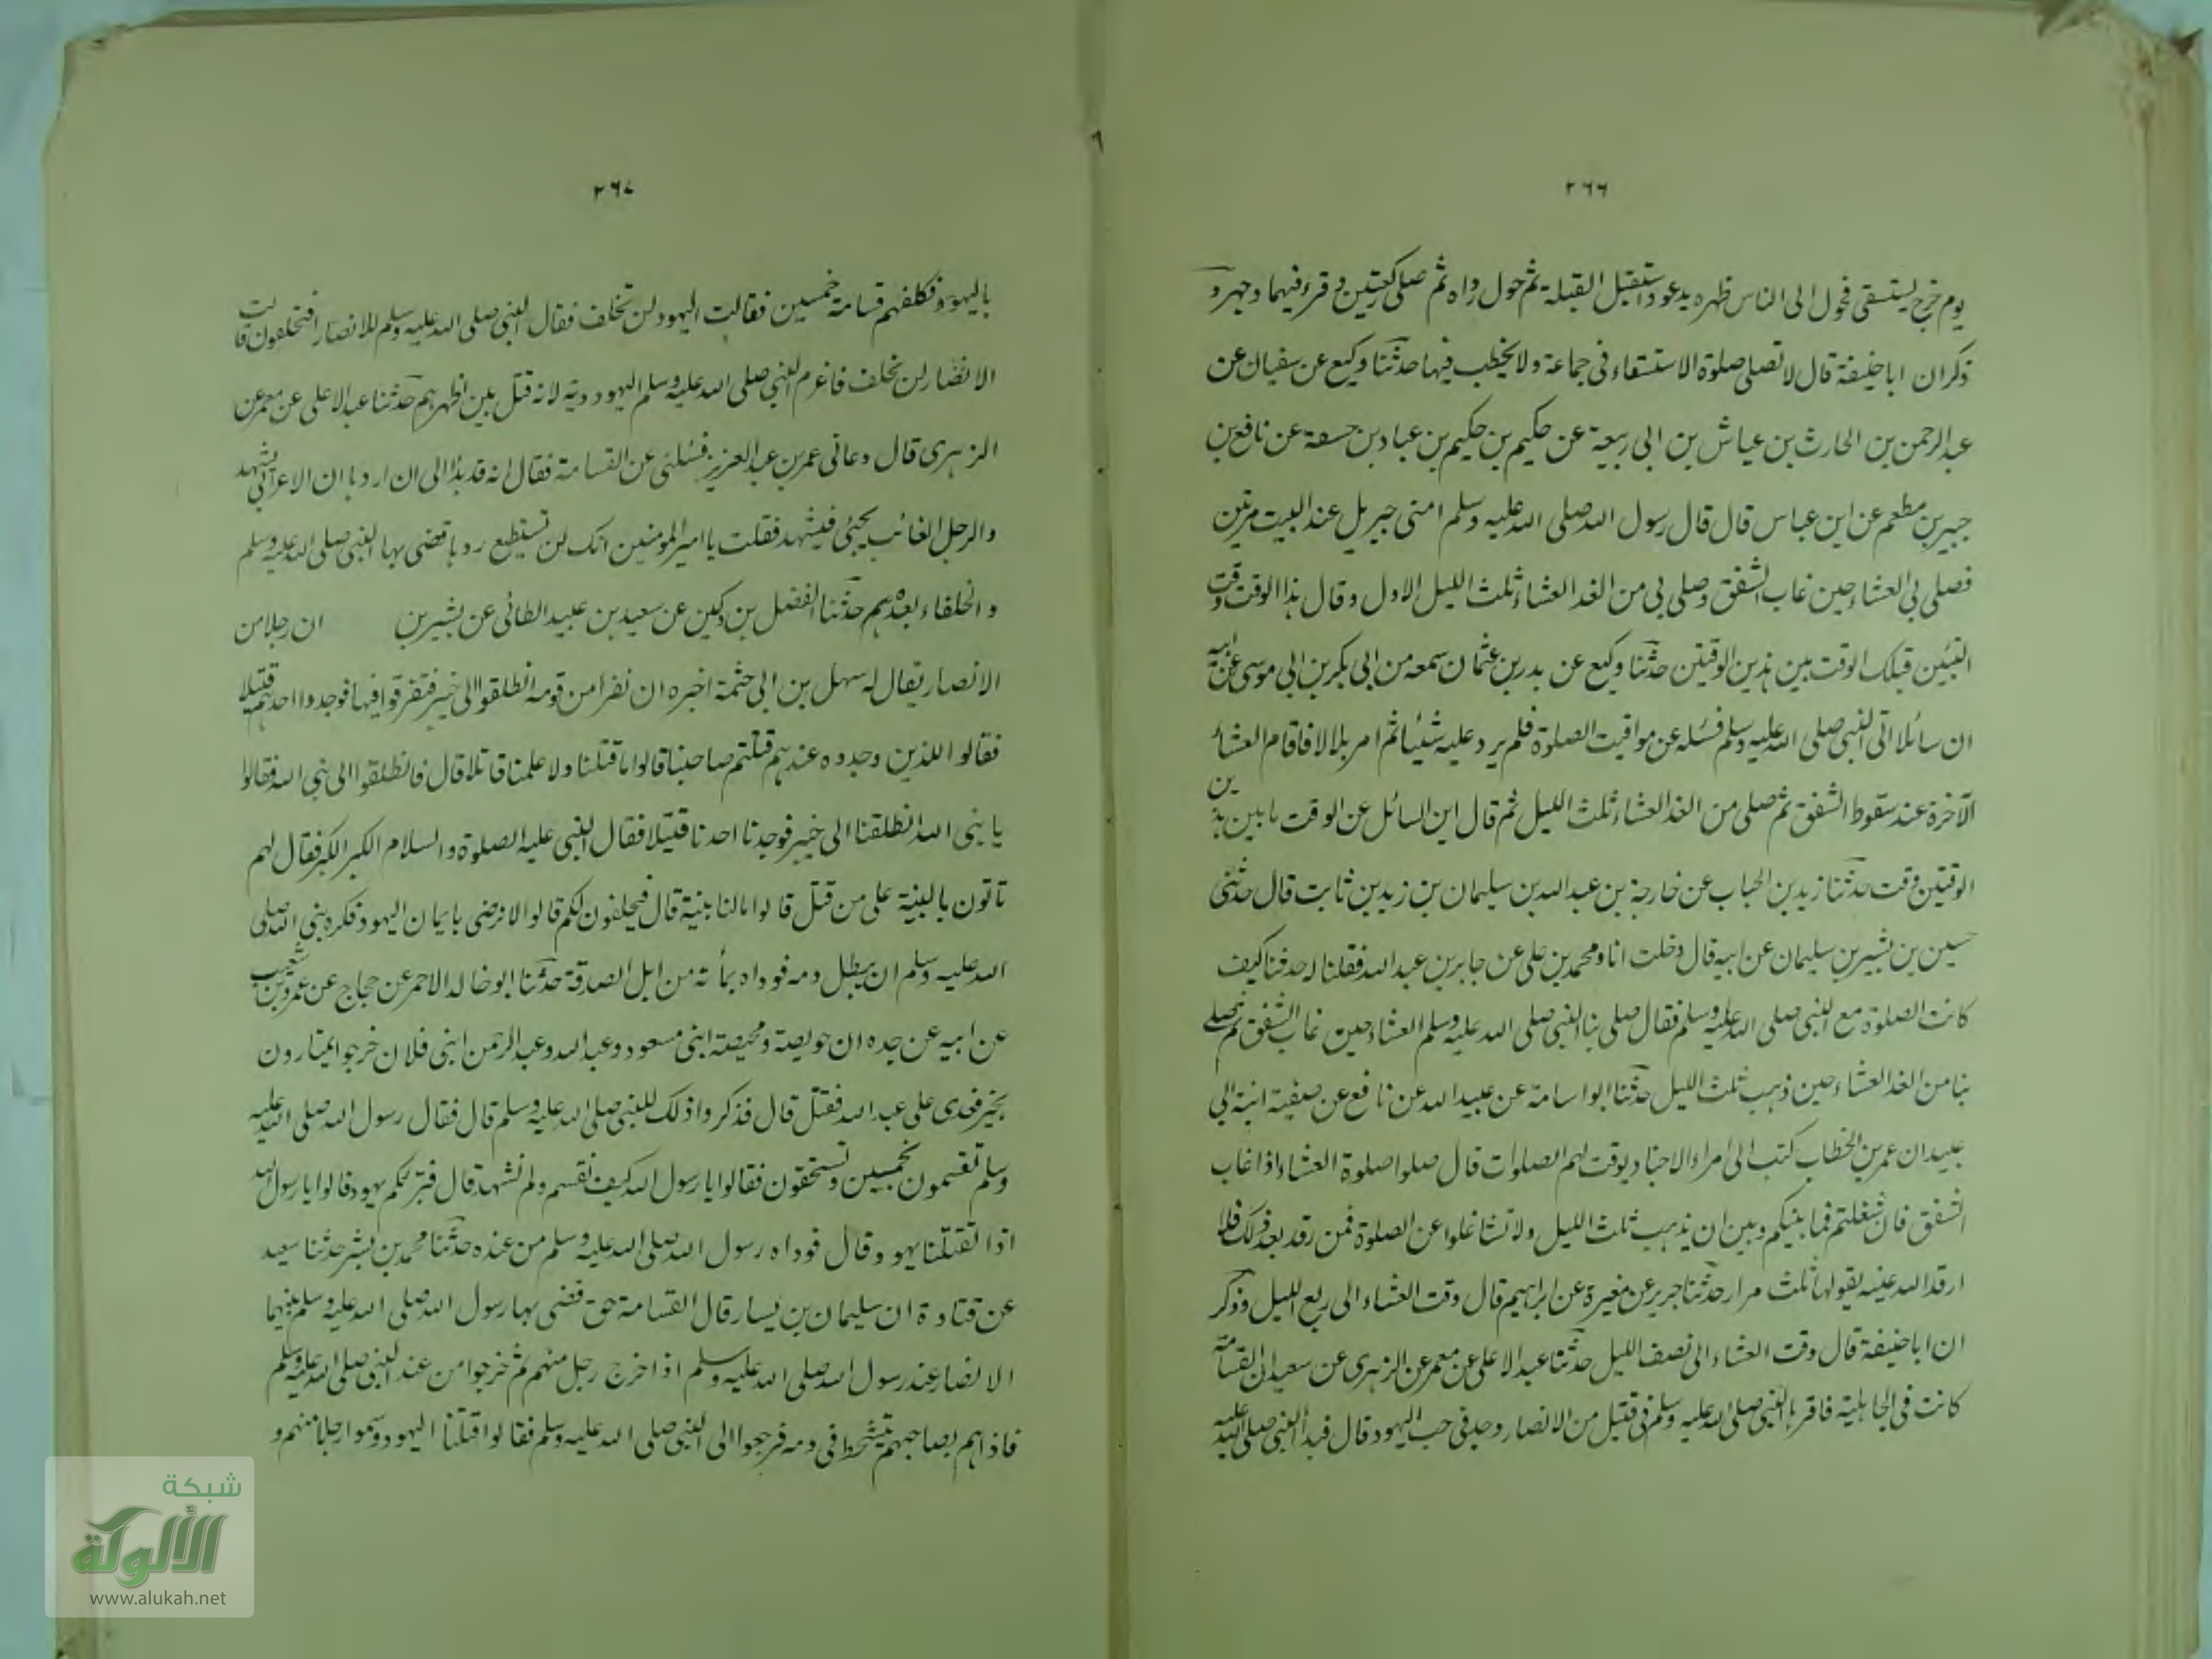 ٢٦٦
يوم خرج يستسقى فحول الى الناس ظهره يدعو واستقبل القبلة ثم حول رداه ثم صلى ركعتين وقرء فيهما وجهر و
ذكر ان ابا حنيفة قال لا تصلى صلوة الاستسقاء فى جماعة ولا يخطب فيها حدثنا وكيع عن سفيان عن
عبد الرحمن بن الحارث بن عياش بن ابى ربيعة عن حكيم بن حكيم بن عباد بن حسفة عن نافع بن
جبير بن مطعم عن ابن عباس قال قال رسول الله صلى الله عليه وسلم امنى جبريل عند البيت مرتين
فصلى بى العشاء حين غاب الشفق وصلى بى من الغد العشاء ثلث الليل الاول وقال هذا الوقت وقت
النبيين قبلك الوقت بين هذين الوقتين حدثنا وكيع عن بدر بن عثمان سمعه من ابى بكر بن ابى موسى عن ابيه
ان سائلا اتى النبى صلى الله عليه وسلم فسئله عن مواقيت الصلوة فلم يرد عليه شيئا ثم امر بلالا فاقام العشاء
الآخرة عند سقوط الشفق ثم صلى من الغد العشاء ثلث الليل ثم قال اين السائل عن الوقت ما بين هذين
الوقتين وقت حدثنا زيد بن الحباب عن خارجة بن عبد الله بن سليمان بن زيد بن ثابت قال حدثنى
حسين بن بشير بن سليمان عن ابيه قال دخلت انا ومحمد بن على عن جابر بن عبد الله فقلنا له حدثنا كيف
كانت الصلوة مع النبى صلى الله عليه وسلم فقال صلى بنا النبى صلى الله عليه وسلم العشاء حين غاب الشفق ثم صلى
بنا من الغد العشاء حين ذهب ثلث الليل حدثنا ابو اسامة عن عبيد الله عن نافع عن صفية ابنة ابى
عبيد ان عمر بن الخطاب كتب الى امراء الاجناد يوقت لهم الصلوات قال صلوا صلوة العشاء اذا غاب
الشفق فان شغلتم فما بينكم وبين ان يذهب ثلث الليل ولا تشاغلوا عن الصلوة فمن رقد بعد ذلك فلا
ارقد الله عينه يقولها ثلث مرار حدثنا جرير عن مغيرة عن ابراهيم قال وقت العشاء الى ربع الليل وذكر
ان ابا حنيفة قال وقت العشاء الى نصف الليل حدثنا عبد الاعلى عن معمر عن الزهرى عن سعيد ان القسامة
كانت فى الجاهلية فاقرها النبى صلى الله عليه وسلم فى قتيل من الانصار وجد فى جب اليهود قال فبدأ النبى صلى الله عليه
٢٦٧
باليهود فكلفهم قسامة خمسين فقالت اليهود لن نحلف فقال النبى صلى الله عليه وسلم للانصار افتحلفون قالت
الانصار لن نحلف فاغرم النبى صلى الله عليه وسلم اليهود دية لانه قتل بين اظهرهم حدثنا عبد الاعلى عن معمر عن
الزهرى قال دعانى عمر بن عبد العزيز فسئلنى عن القسامة فقال انه قد بدا لى ان اردها ان الاعرابى يشهد
والرجل الغائب يجئى فيشهد فقلت يا امير المومنين انك لن تستطيع ردها قضى بها النبى صلى الله عليه وسلم
والخلفاء بعده هم حدثنا الفضل بن دكين عن سعيد بن عبيد الطائى عن بشير بن ان رجلا من
الانصار يقال له سهل بن ابى حثمة اخبره ان نفرا من قومه انطلقوا الى خيبر فتفرقوا فيها فوجدوا احدهم قتيلا
فقالوا للذين وجدوه عندهم قتلتم صاحبنا قالوا ما قتلنا ولا علمنا قاتلا قال فانطلقوا الى نبى الله فقالوا
يا نبى الله انطلقنا الى خيبر فوجدنا احدنا قتيلا فقال النبى عليه الصلوة والسلام الكبر الكبر فقال لهم
تاتون بالبينة على من قتل قالوا ما لنا بينة قال فيحلفون لكم قالوا لا نرضى بايمان اليهود فكره نبى الله صلى
الله عليه وسلم ان يبطل دمه فوداه بمأة من ابل الصدقة حدثنا ابو خالد الاحمر عن حجاج عن عمرو بن شعيب
عن ابيه عن جده ان حويصة ومحيصة ابنى مسعود وعبد الله وعبد الرحمن ابنى فلان خرجوا يمتارون
بخيبر فعدى على عبد الله فقتل قال فذكروا ذلك للنبى صلى الله عليه وسلم قال فقال رسول الله صلى الله عليه
وسلم تقسمون بخمسين وتستحقون فقالوا يا رسول الله كيف نقسم ولم نشهد قال فتبرئكم يهود قالوا يا رسول الله
اذا تقتلنا يهود وقال فوداه رسول الله صلى الله عليه وسلم من عنده حدثنا محمد بن بشر حدثنا سعيد
عن قتادة ان سليمان بن يسار قال القسامة حق قضى بها رسول الله صلى الله عليه وسلم بينهما
الانصار عند رسول الله صلى الله عليه وسلم اذا خرج رجل منهم ثم خرجوا من عند النبى صلى الله عليه وسلم
فاذا هم بصاحبهم يتشحط فى دمه فرجعوا الى النبى صلى الله عليه وسلم فقالوا قتلتنا اليهود وسموا رجلا منهم و
شبكة
الألوكة
www.alukah.net